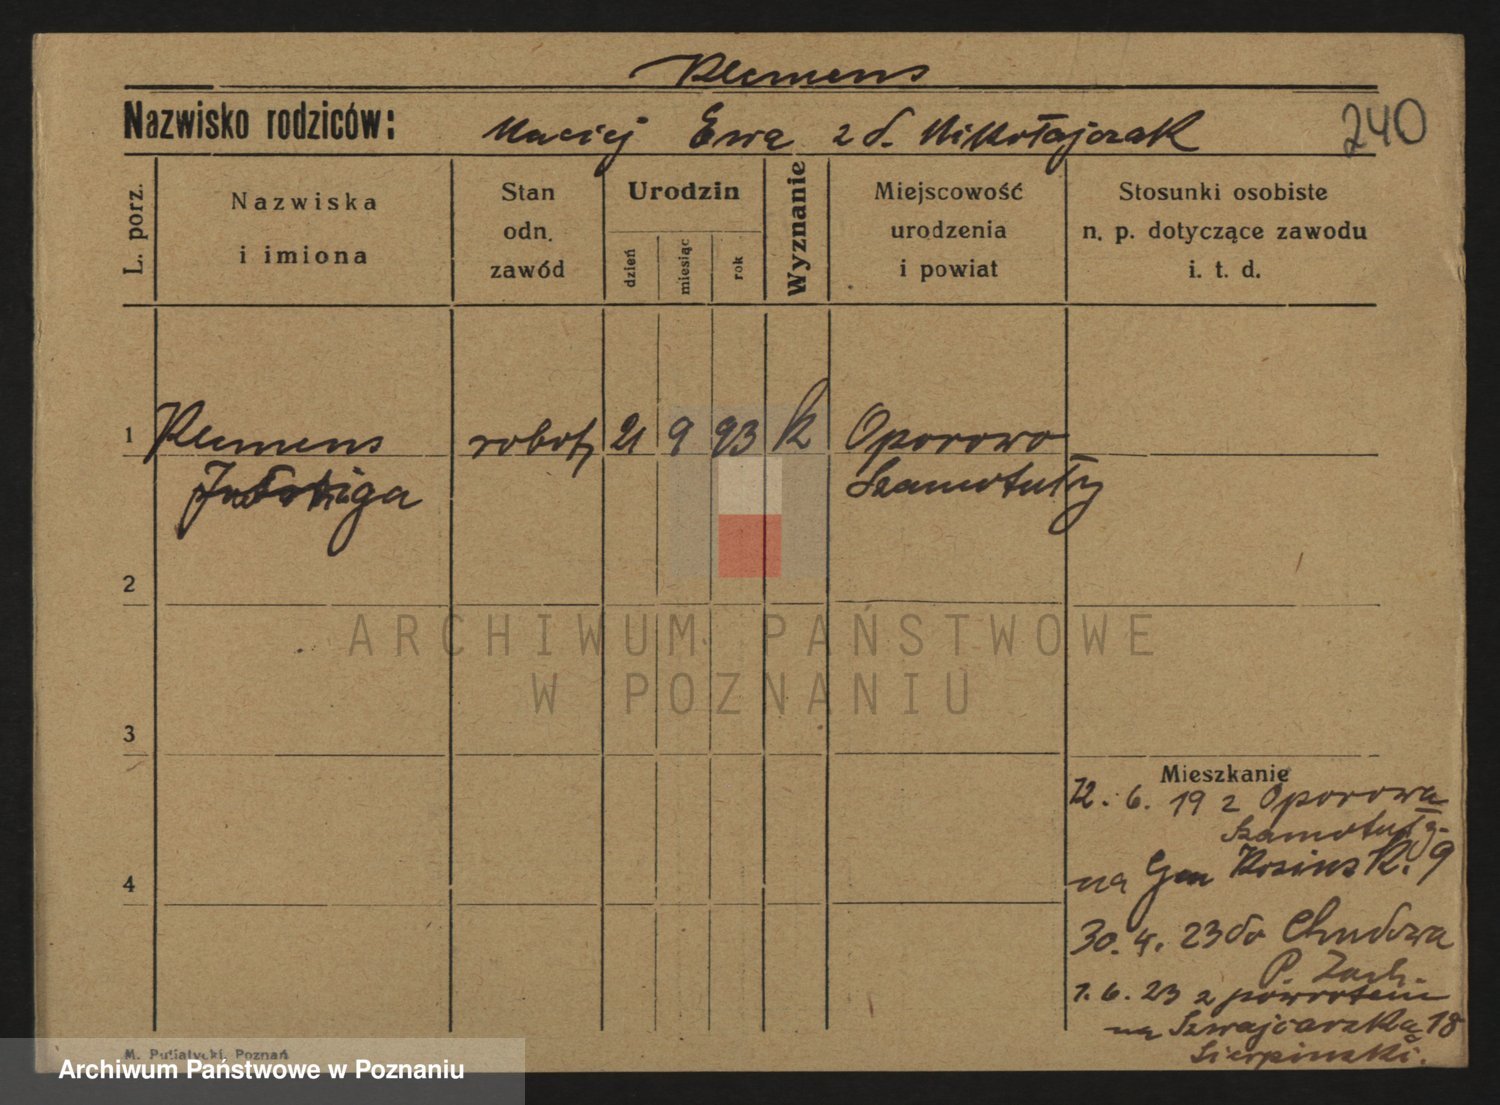 Klemens
Nazwisko rodziców:
Maciej Ewa z d. Mikołajczak
240
L. porz.
Nazwiska
i imiona
Stan
odn.
zawód
Urodzin
dzień
miesiąc
rok
Wyznanie
Miejscowość
urodzenia
i powiat
Stosunki osobiste
n. p. dotyczące zawodu
i. t. d.
1 Klemens robotn 21 9 93 k Oporowo
Jadwiga Szamotuły
2
ARCHIWUM PAŃSTWOWE
W POZNANIU
3
Mieszkanie
12. 6. 19 z Oporowa
Szamotuły
4
na Gen Kosinsk. 9
30. 4. 23 do Chudowa
P. Zach.
1. 6. 23 z powrotem
na Szwajcarską 18
Sierpinski.
M. Putiatycki, Poznań
Archiwum Państwowe w Poznaniu